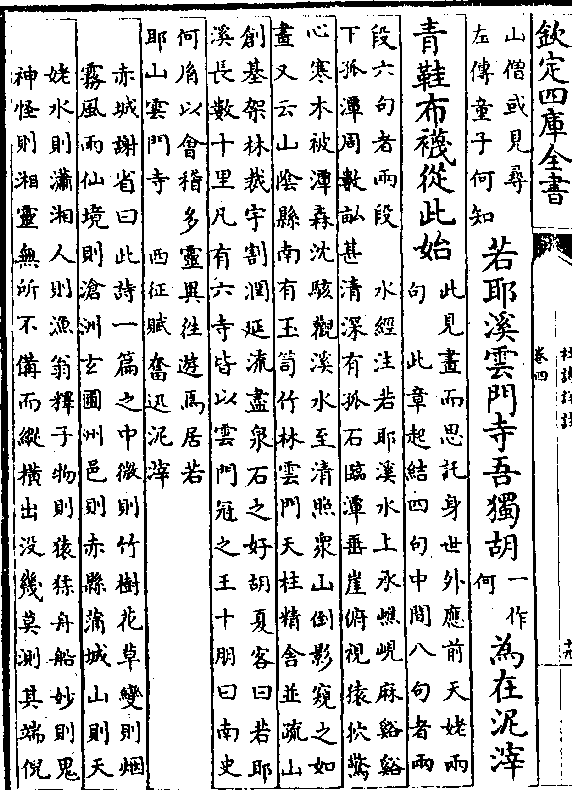 欽定四庫全書
卷四
山僧或見尋
左傳童子何知
若耶溪雲門寺吾獨胡
一作
何
為在泥滓
青鞋布襪從此始
此見畫而思託身世外應前天姥兩
句 此章起結四句中間八句者兩
段六句者兩段 水經注若耶溪水上承嶕峴麻谿谿
下孤潭周數畝甚清深有孤石臨潭垂崖俯視猿狖驚
心寒木被潭森沈駭觀溪水至清照衆山倒影窺之如
畫又云山陰縣南有玉笥竹林雲門天柱精舍並疏山
創基架林裁宇割澗延流盡泉石之好胡夏客曰若耶
溪長數十里凡有六寺皆以雲門冠之王十朋曰南史
何胤以會稽多靈異往遊焉居若
耶山雲門寺 西征賦奮迅泥滓
赤城謝省曰此詩一篇之中微則竹樹花草變則烟
霧風雨仙境則滄洲玄圃州邑則赤縣蒲城山則天
姥水則瀟湘人則漁翁釋子物則猿猱舟船妙則鬼
神怪則湘靈無所不備而縱横出没幾莫測其端倪